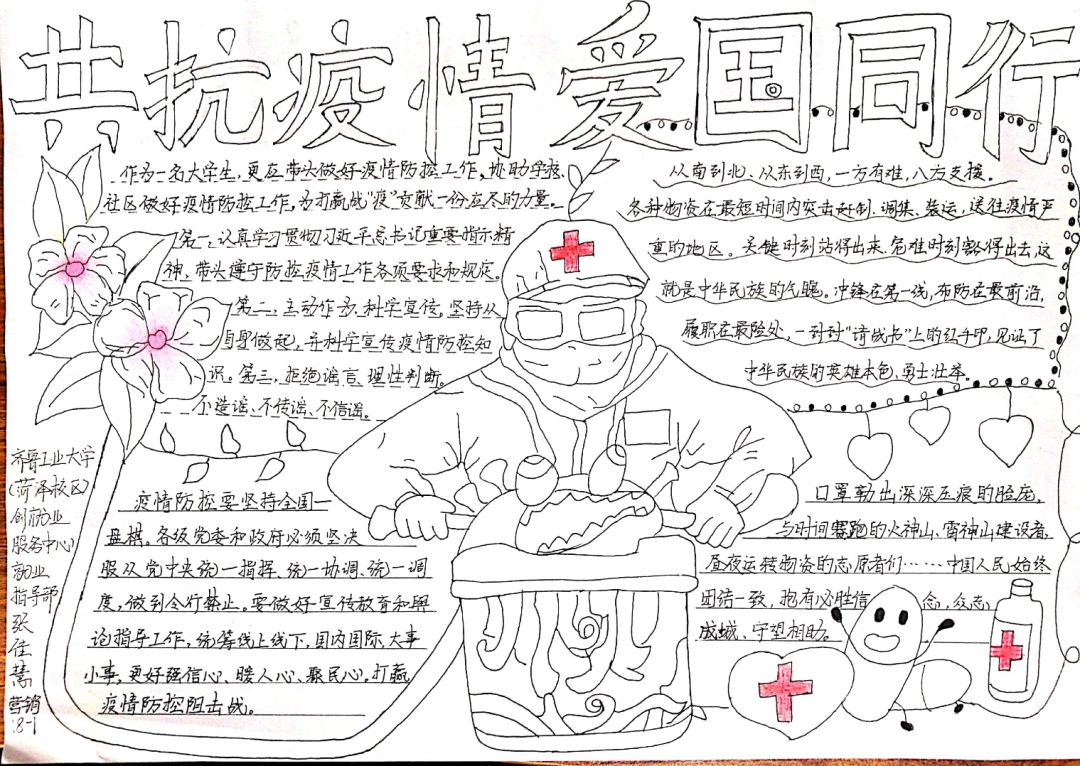 共抗疫情 爱国同行
作为一名大学生,更应带头做好疫情防控工作,协助学校、
社区做好疫情防控工作,为打赢战“疫”贡献一份应尽的力量。
第一、认真学习贯彻习近平总书记重要指示精
神,带头遵守防控疫情工作各项要求和规定。
第二、主动作为,科学宣传,坚持从
自身做起,并科学宣传疫情防控知
识。第三、拒绝谣言、理性判断。
不造谣、不传谣、不信谣。
从南到北、从东到西,一方有难,八方支援。
各种物资在最短时间内突击赶制、调集、装运,送往疫情严
重的地区。关键时刻站得出来、危难时刻豁得出去,这
就是中华民族的气魄。冲锋在第一线,布防在最前沿,
履职在最险处,一封封“请战书”上的红手印,见证了
中华民族的英雄本色、勇士壮举。
疫情防控要坚持全国一
盘棋。各级党委和政府必须坚决
服从党中央统一指挥、统一协调、统一调
度,做到令行禁止。要做好宣传教育和舆
论指导工作,统筹线上线下,国内国际,大事
小事,更好强信心、暖人心、聚民心,打赢
疫情防控阻击战。
口罩勒出深深压痕的脸庞,
与时间赛跑的火神山、雷神山建设者,
昼夜运转物资的志愿者们……中国人民始终
团结一致,抱有必胜信念,众志
成城、守望相助。
齐鲁工业大学
(菏泽校区)
创就业
服务中心
就业
指导部
张
佳
慧
营销
18-1